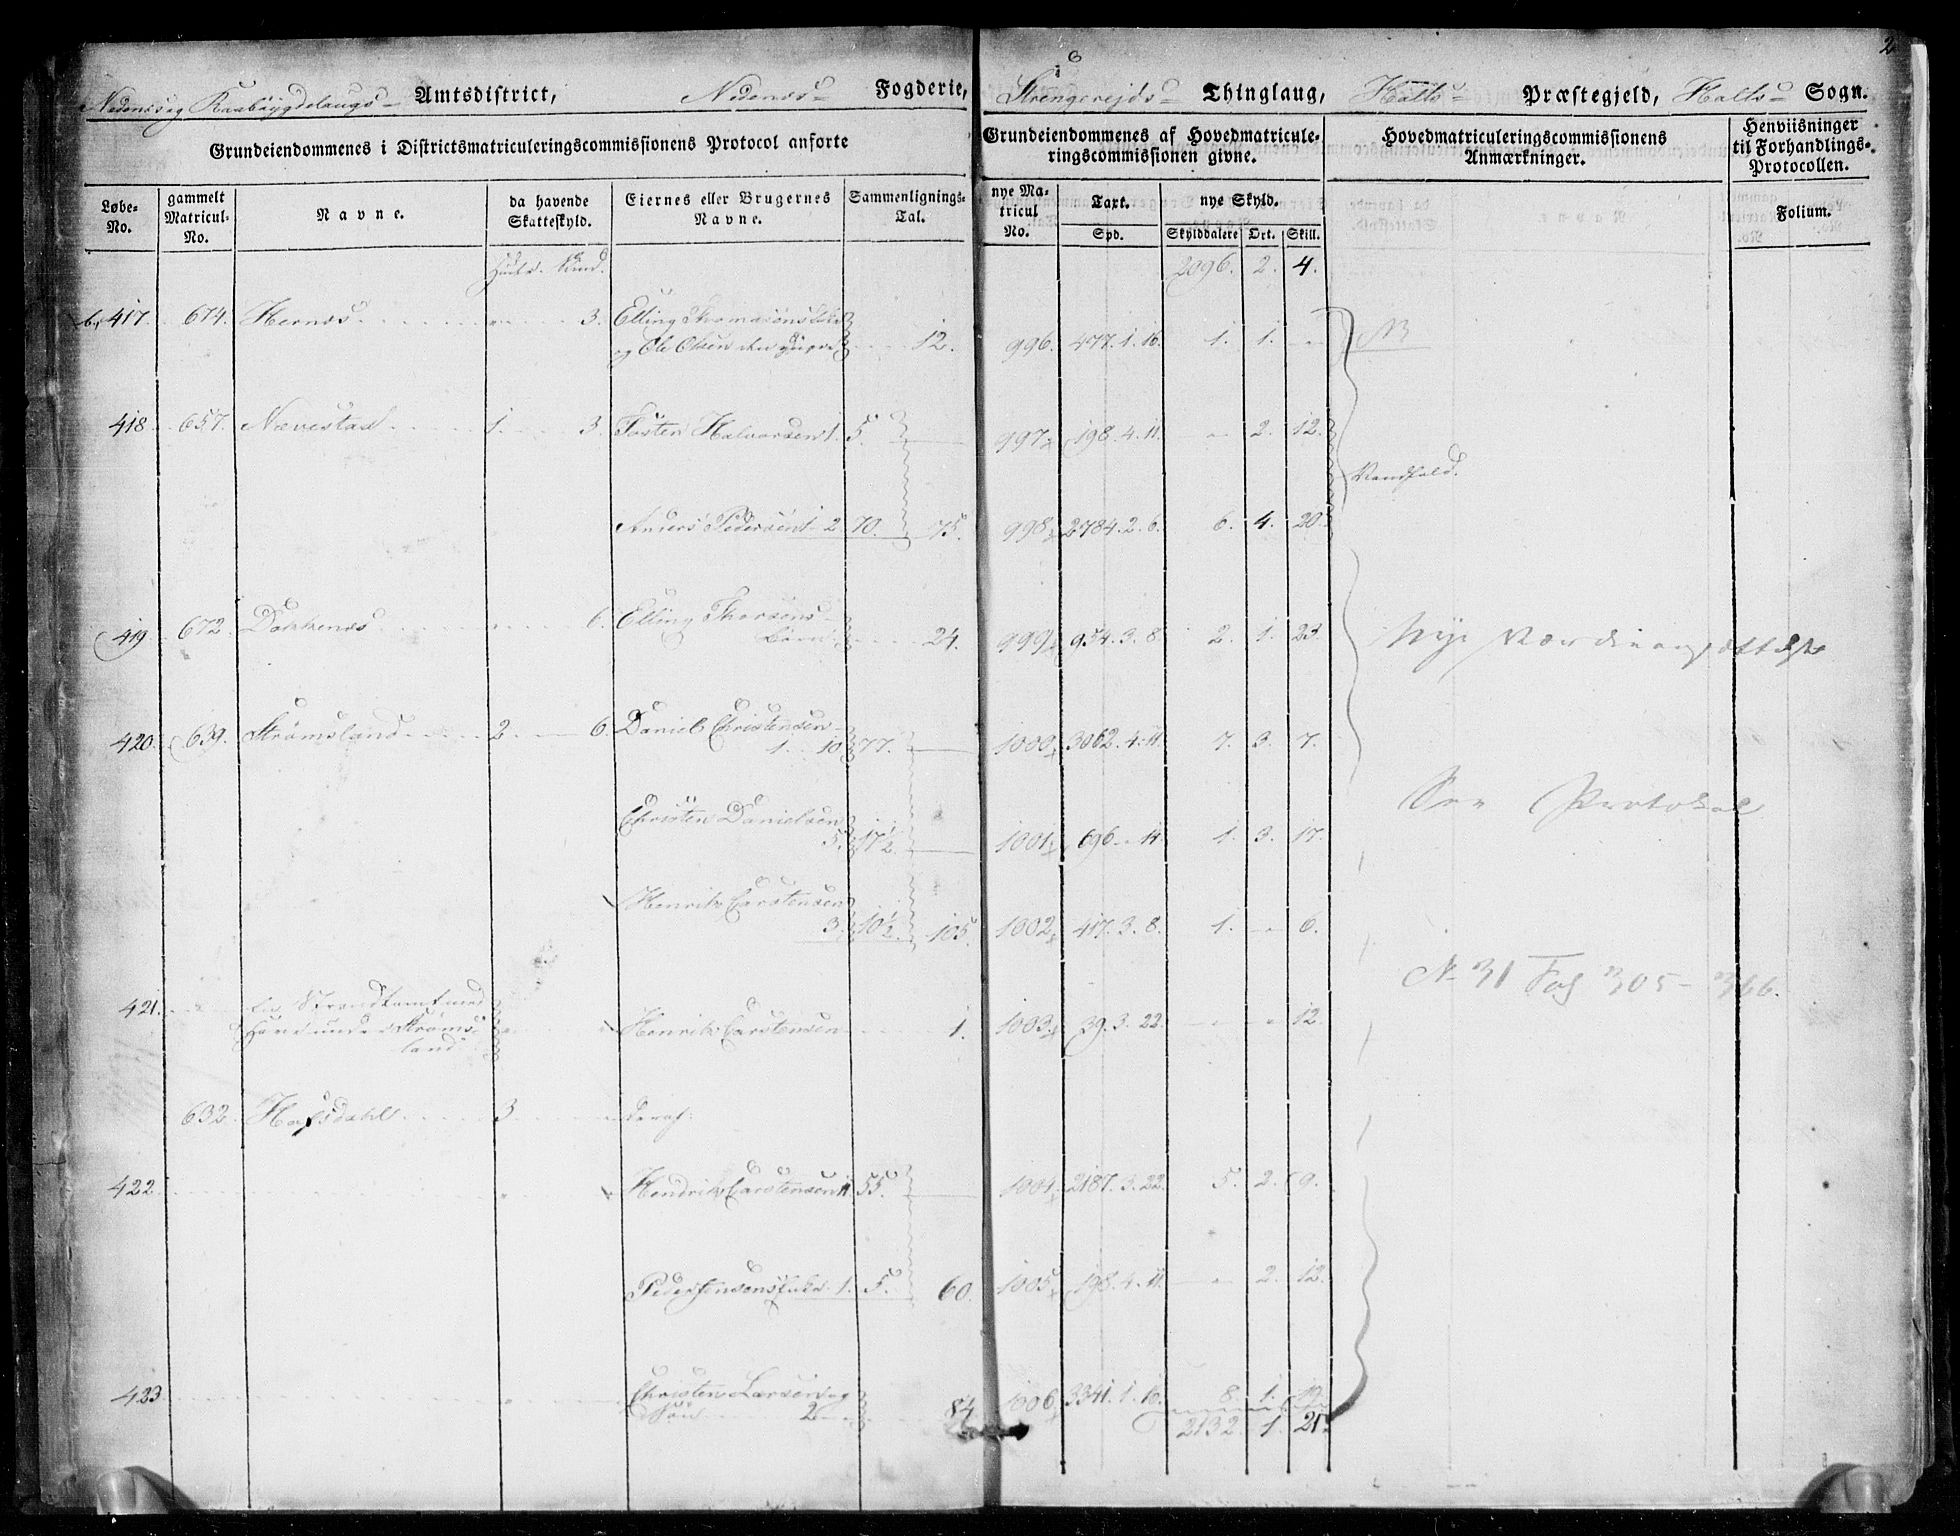 2
Nedenes og Raabÿgdelaugs Amtsdistrict, Nedenæs Fogderie, Strengereids Thinglaug, Holts Præstegjeld, Holts Sogn.
Grundeiendommenes i Districtsmatriculeringscommissionens Protocol anførte
Grundeiendommenes af Hovedmatricule-
ringscommissionen givne.
Hovedmatriculeringscommissionens
Anmærkninger.
Henviisninger
til Forhandlings-
Protocollen.
Løbe-
No.
gammelt
Matricul-
No.
Navne.
da havende
Skatteskyld.
Eiernes eller Brugernes
Navne.
Sammenlignings-
Tal.
nye Ma-
tricul
No.
Taxt.
Spd.
nye Skyld.
Skylddalere Ort. Skill.
Folium.
Huder. Skind. 2096. 2. 4.
417. 674. Hernæs 3. Elling Thomasøns Enke
og Ole Olsen den yngre 12. 996. 477.1.16. 1. 1. NB
418 657. Nævestad 1. 3. Tosten Halvorsen 1. 5. 997. 198.4.11. 2. 12.
Vandfald.
Anders Pedersen 2 70. 75. 998. 2784.2.6. 6. 4. 20.
419 672. Dokkenæs 6. Elling Thorsens
Børn 24. 999. 954.3.8. 2. 1. 23. Nye Værdieansættelse
420. 639. Strømsland 2. 6. Daniel Christensen
1. 10 77. 1000 3062.4.11. 7. 3. 7.
See Protokol
Christen Danielsen
5. 17½. 1001. 696 11. 1. 3. 17.
Henrik Carstensen
3. 10½. 105. 1002 417.3.8. 1. 6.
No 31 Fol 305-366.
421. En Strandtomt med
Have under Strøms-
land Henrik Carstensen 1. 1003. 39.3.22. 12
632. Hafsdahl 3 deraf:
422 Hendrik Carstensen 11 55. 1004. 2187.3.22. 5. 2. 9.
Peder Jensens Enke 1. 5. 60. 1005. 198.4.11. 2. 12.
423 Christen Larsen og
Søn 2 84 1006 3341.1.16. 8. 1. 19.
2132. 1. 21.